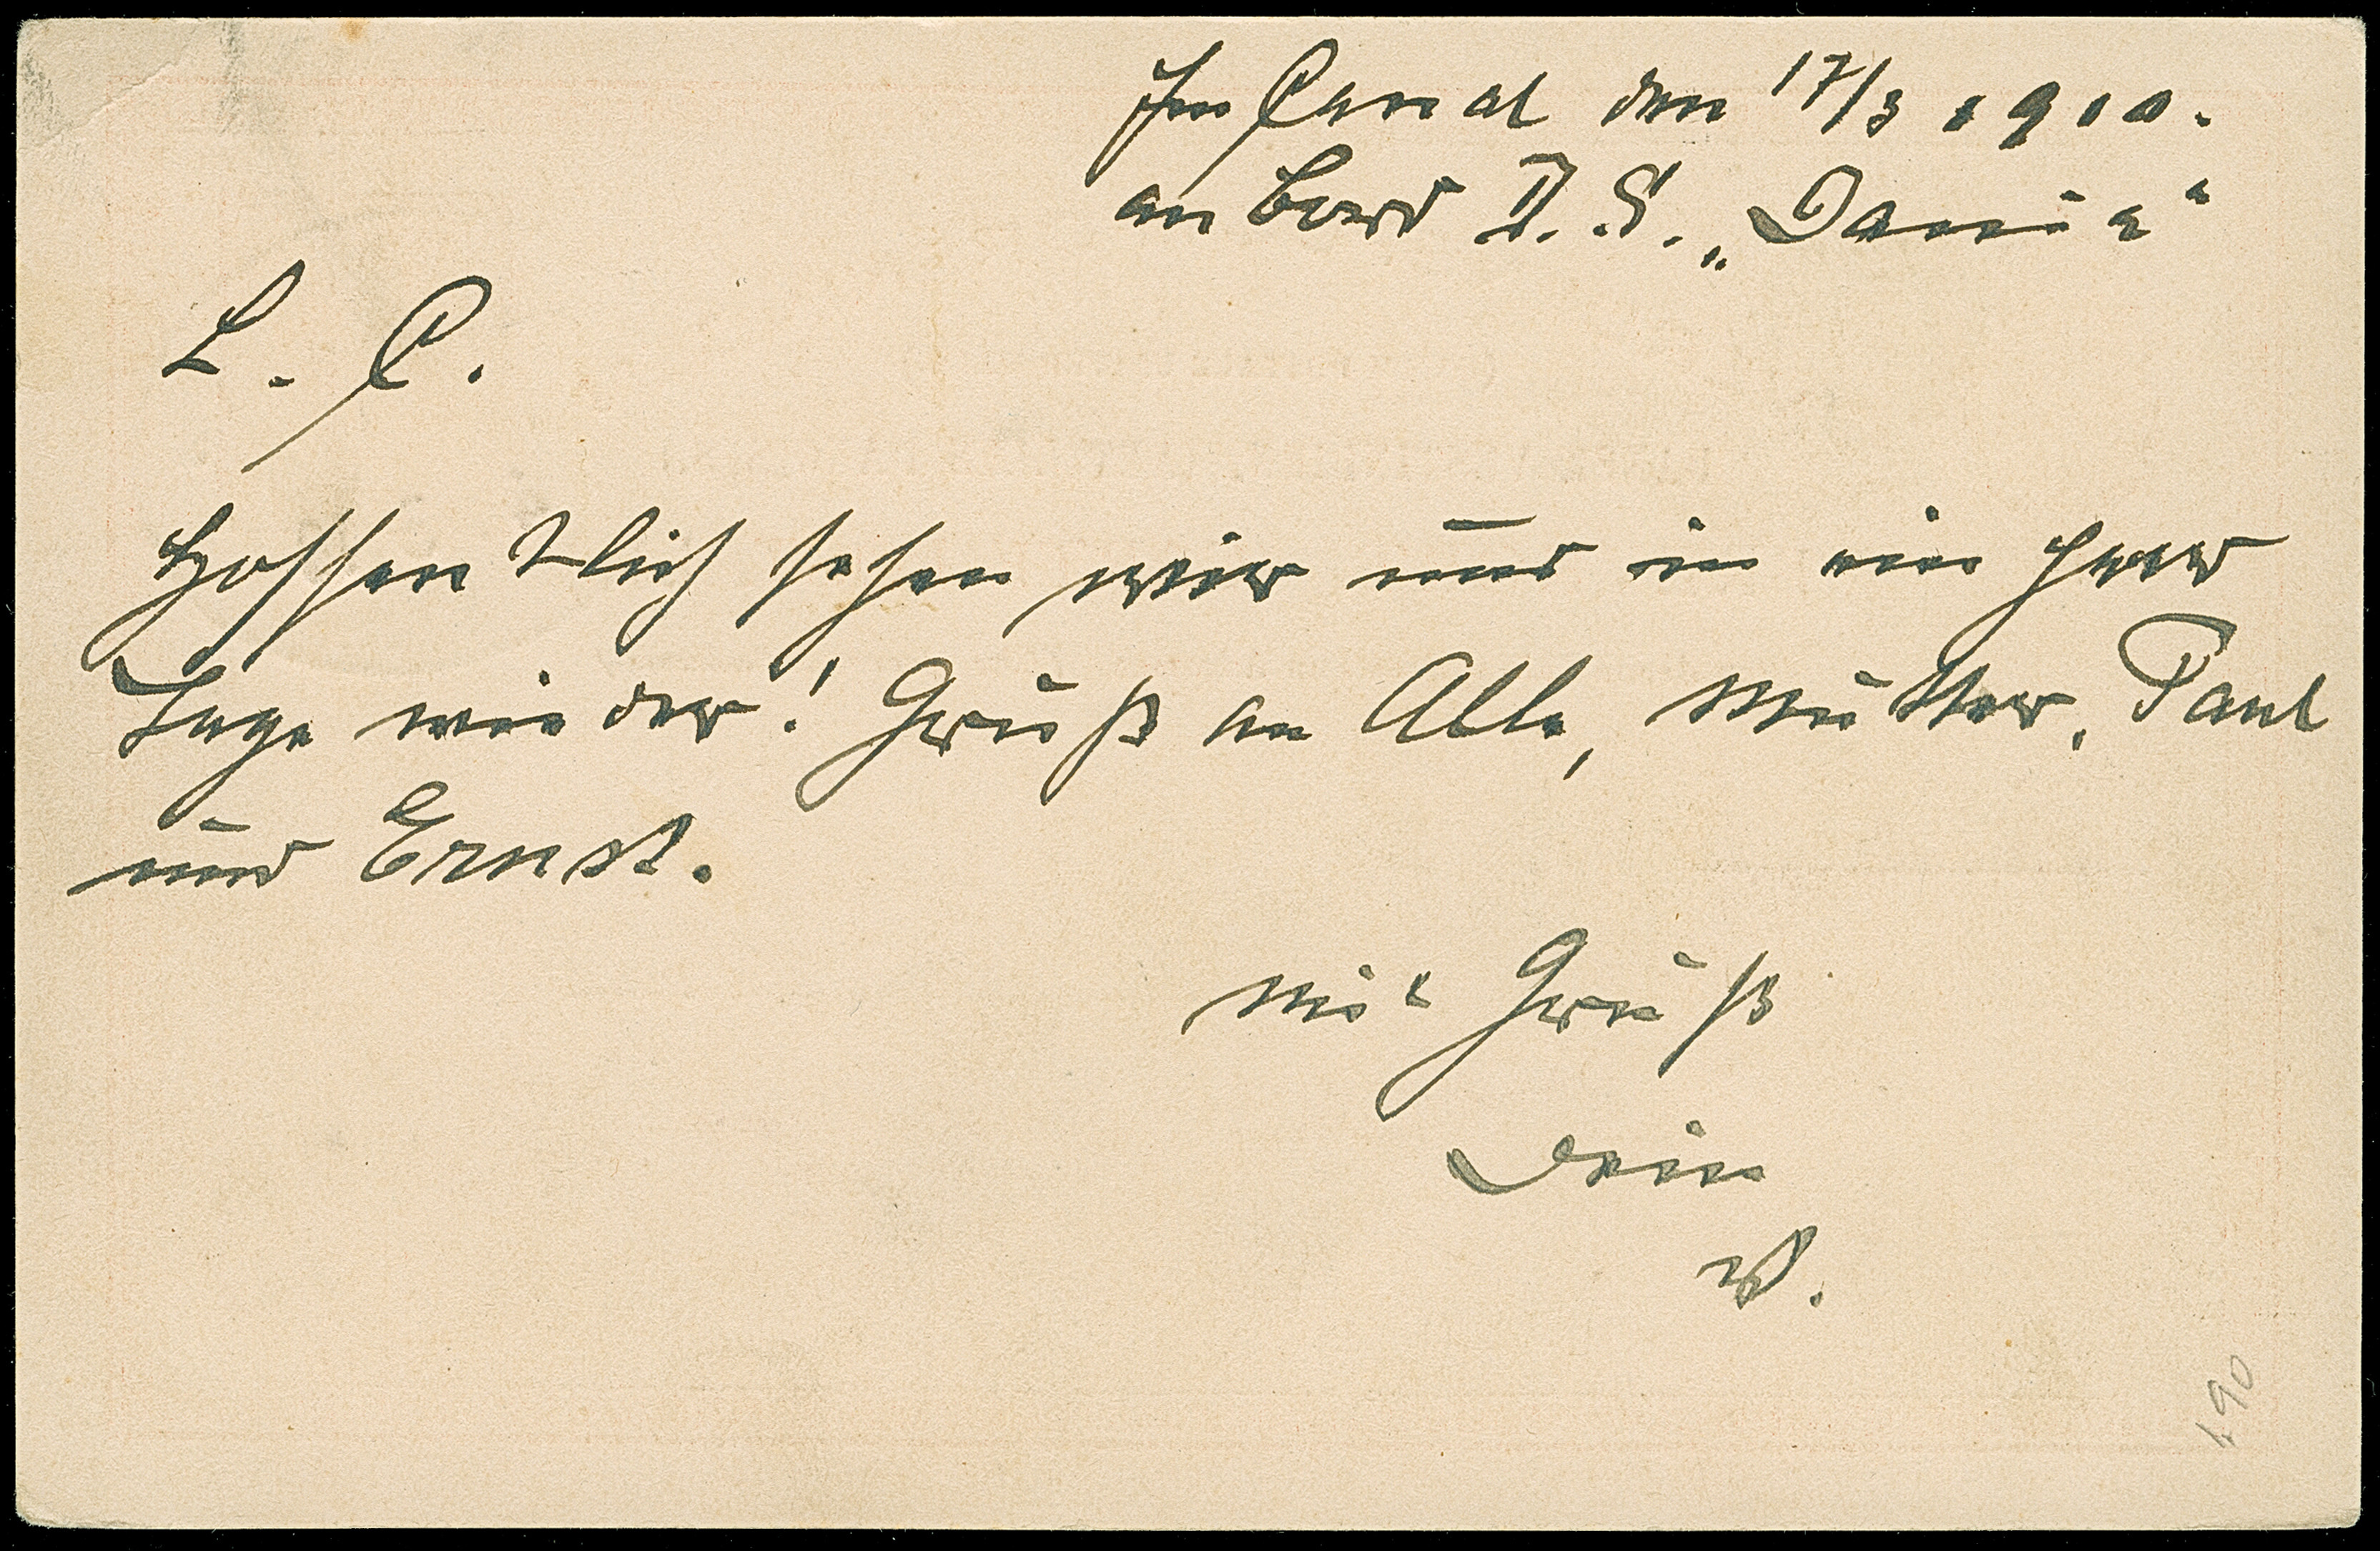 Im Canal den 17/3 1910.
an Bord D. S. „Dania“
L. C.
Hoffentlich sehen wir uns in ein paar
Tage wieder! Gruß an Alle, Mutter, Paul
und Ernst.
Mit Gruß
Dein
W.
190